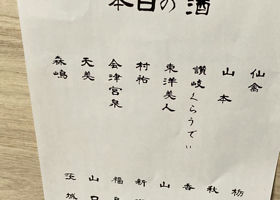 本日の酒
仙禽
山本
讃岐くらうでぃ
東洋美人
村祐
会津宮泉
天美
森嶋
栃
秋
香
山
新
福
山口
茨城